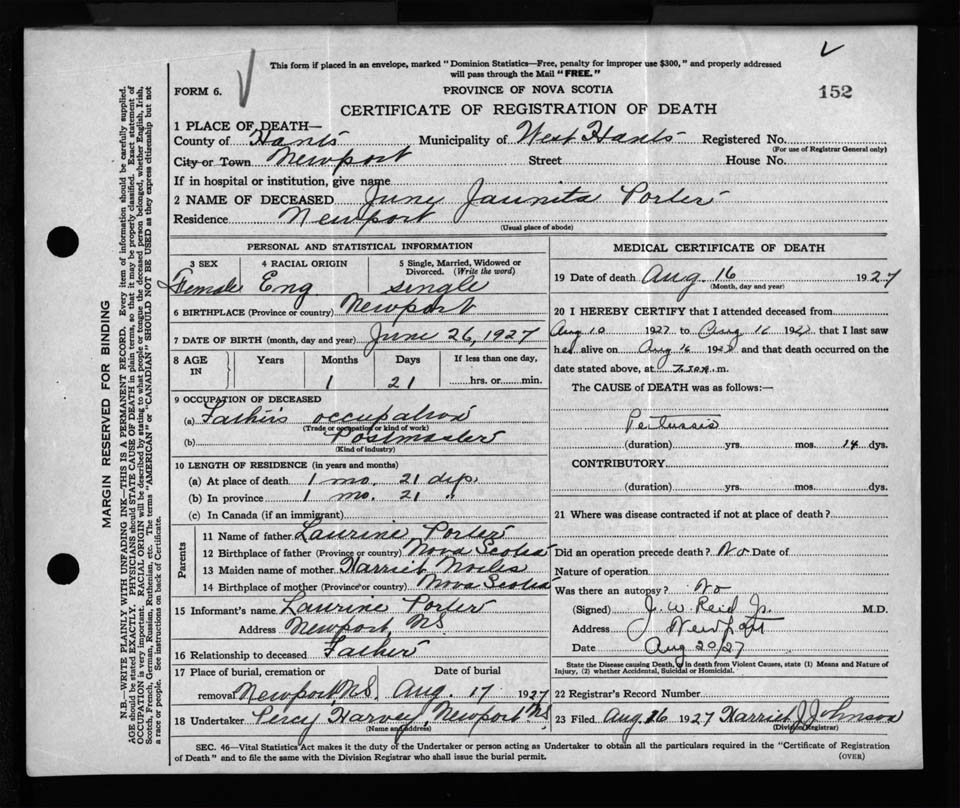 This form if placed in an envelope, marked "Dominion Statistics—Free, penalty for improper use $300," and properly addressed
will pass through the Mail "FREE."
FORM 6.
PROVINCE OF NOVA SCOTIA
152
CERTIFICATE OF REGISTRATION OF DEATH
1 PLACE OF DEATH—
County of Hants Municipality of West Hants Registered No.
(For use of Registrar General only)
City or Town Newport Street House No.
If in hospital or institution, give name
2 NAME OF DECEASED June Jaunita Porter
Residence Newport
(Usual place of abode)
PERSONAL AND STATISTICAL INFORMATION
3 SEX 4 RACIAL ORIGIN 5 Single, Married, Widowed or
Divorced. (Write the word)
Female Eng single
6 BIRTHPLACE (Province or country) Newport
7 DATE OF BIRTH (month, day and year) June 26, 1927
8 AGE Years Months Days If less than one day,
IN 1 21 hrs. or min.
9 OCCUPATION OF DECEASED
(a) Father's occupation
(Trade or occupation or kind of work)
(b) Postmaster
(Kind of industry)
10 LENGTH OF RESIDENCE (in years and months)
(a) At place of death 1 mo. 21 dys.
(b) In province 1 mo. 21 "
(c) In Canada (if an immigrant)
Parents
11 Name of father Laurine Porter
12 Birthplace of father (Province or country) Nova Scotia
13 Maiden name of mother Harriet
14 Birthplace of mother (Province or country) Nova Scotia
15 Informant's name Laurine Porter
Address Newport, NS
16 Relationship to deceased Father
17 Place of burial, cremation or Date of burial
removal Newport, NS. Aug. 17 1927
18 Undertaker Percy Harvey, Newport NS
(Name and address)
MEDICAL CERTIFICATE OF DEATH
19 Date of death Aug 16 1927
(Month, day and year)
20 I HEREBY CERTIFY that I attended deceased from
Aug 10 1927 to Aug 16 1927 that I last saw
her alive on Aug 16 1927 and that death occurred on the
date stated above, at m.
The CAUSE OF DEATH was as follows:
Pertussis
(duration) yrs. mos. 14 dys.
CONTRIBUTORY
(duration) yrs. mos. dys.
21 Where was disease contracted if not at place of death?
Did an operation precede death? No Date of
Nature of operation
Was there an autopsy? No
(Signed) J. W. Reid Jr. M.D.
Address Newport
Date Aug 20/27
State the Disease causing Death, or in death from Violent Causes, state (1) Means and Nature of
Injury, (2) whether Accidental, Suicidal or Homicidal.
22 Registrar's Record Number
23 Filed Aug 26 1927 Harriet J Johnson
(Division Registrar)
SEC. 46—Vital Statistics Act makes it the duty of the Undertaker or person acting as Undertaker to obtain all the particulars required in the "Certificate of Registration
of Death" and to file the same with the Division Registrar who shall issue the burial permit.
(OVER)
MARGIN RESERVED FOR BINDING
N.B.—WRITE PLAINLY WITH UNFADING INK—THIS IS A PERMANENT RECORD. Every item of information should be carefully supplied.
AGE should be stated EXACTLY. PHYSICIANS should STATE CAUSE OF DEATH in plain terms, so that it may be properly classified. Exact statement of
OCCUPATION is very important. RACIAL ORIGIN will be described by stating to what people or tongue the deceased person belonged, whether English, Irish,
Scotch, French, German, Russian, Ruthenian, etc. The terms "AMERICAN" or "CANADIAN" SHOULD NOT BE USED as they express citizenship but not
a race or people. See instructions on back of Certificate.